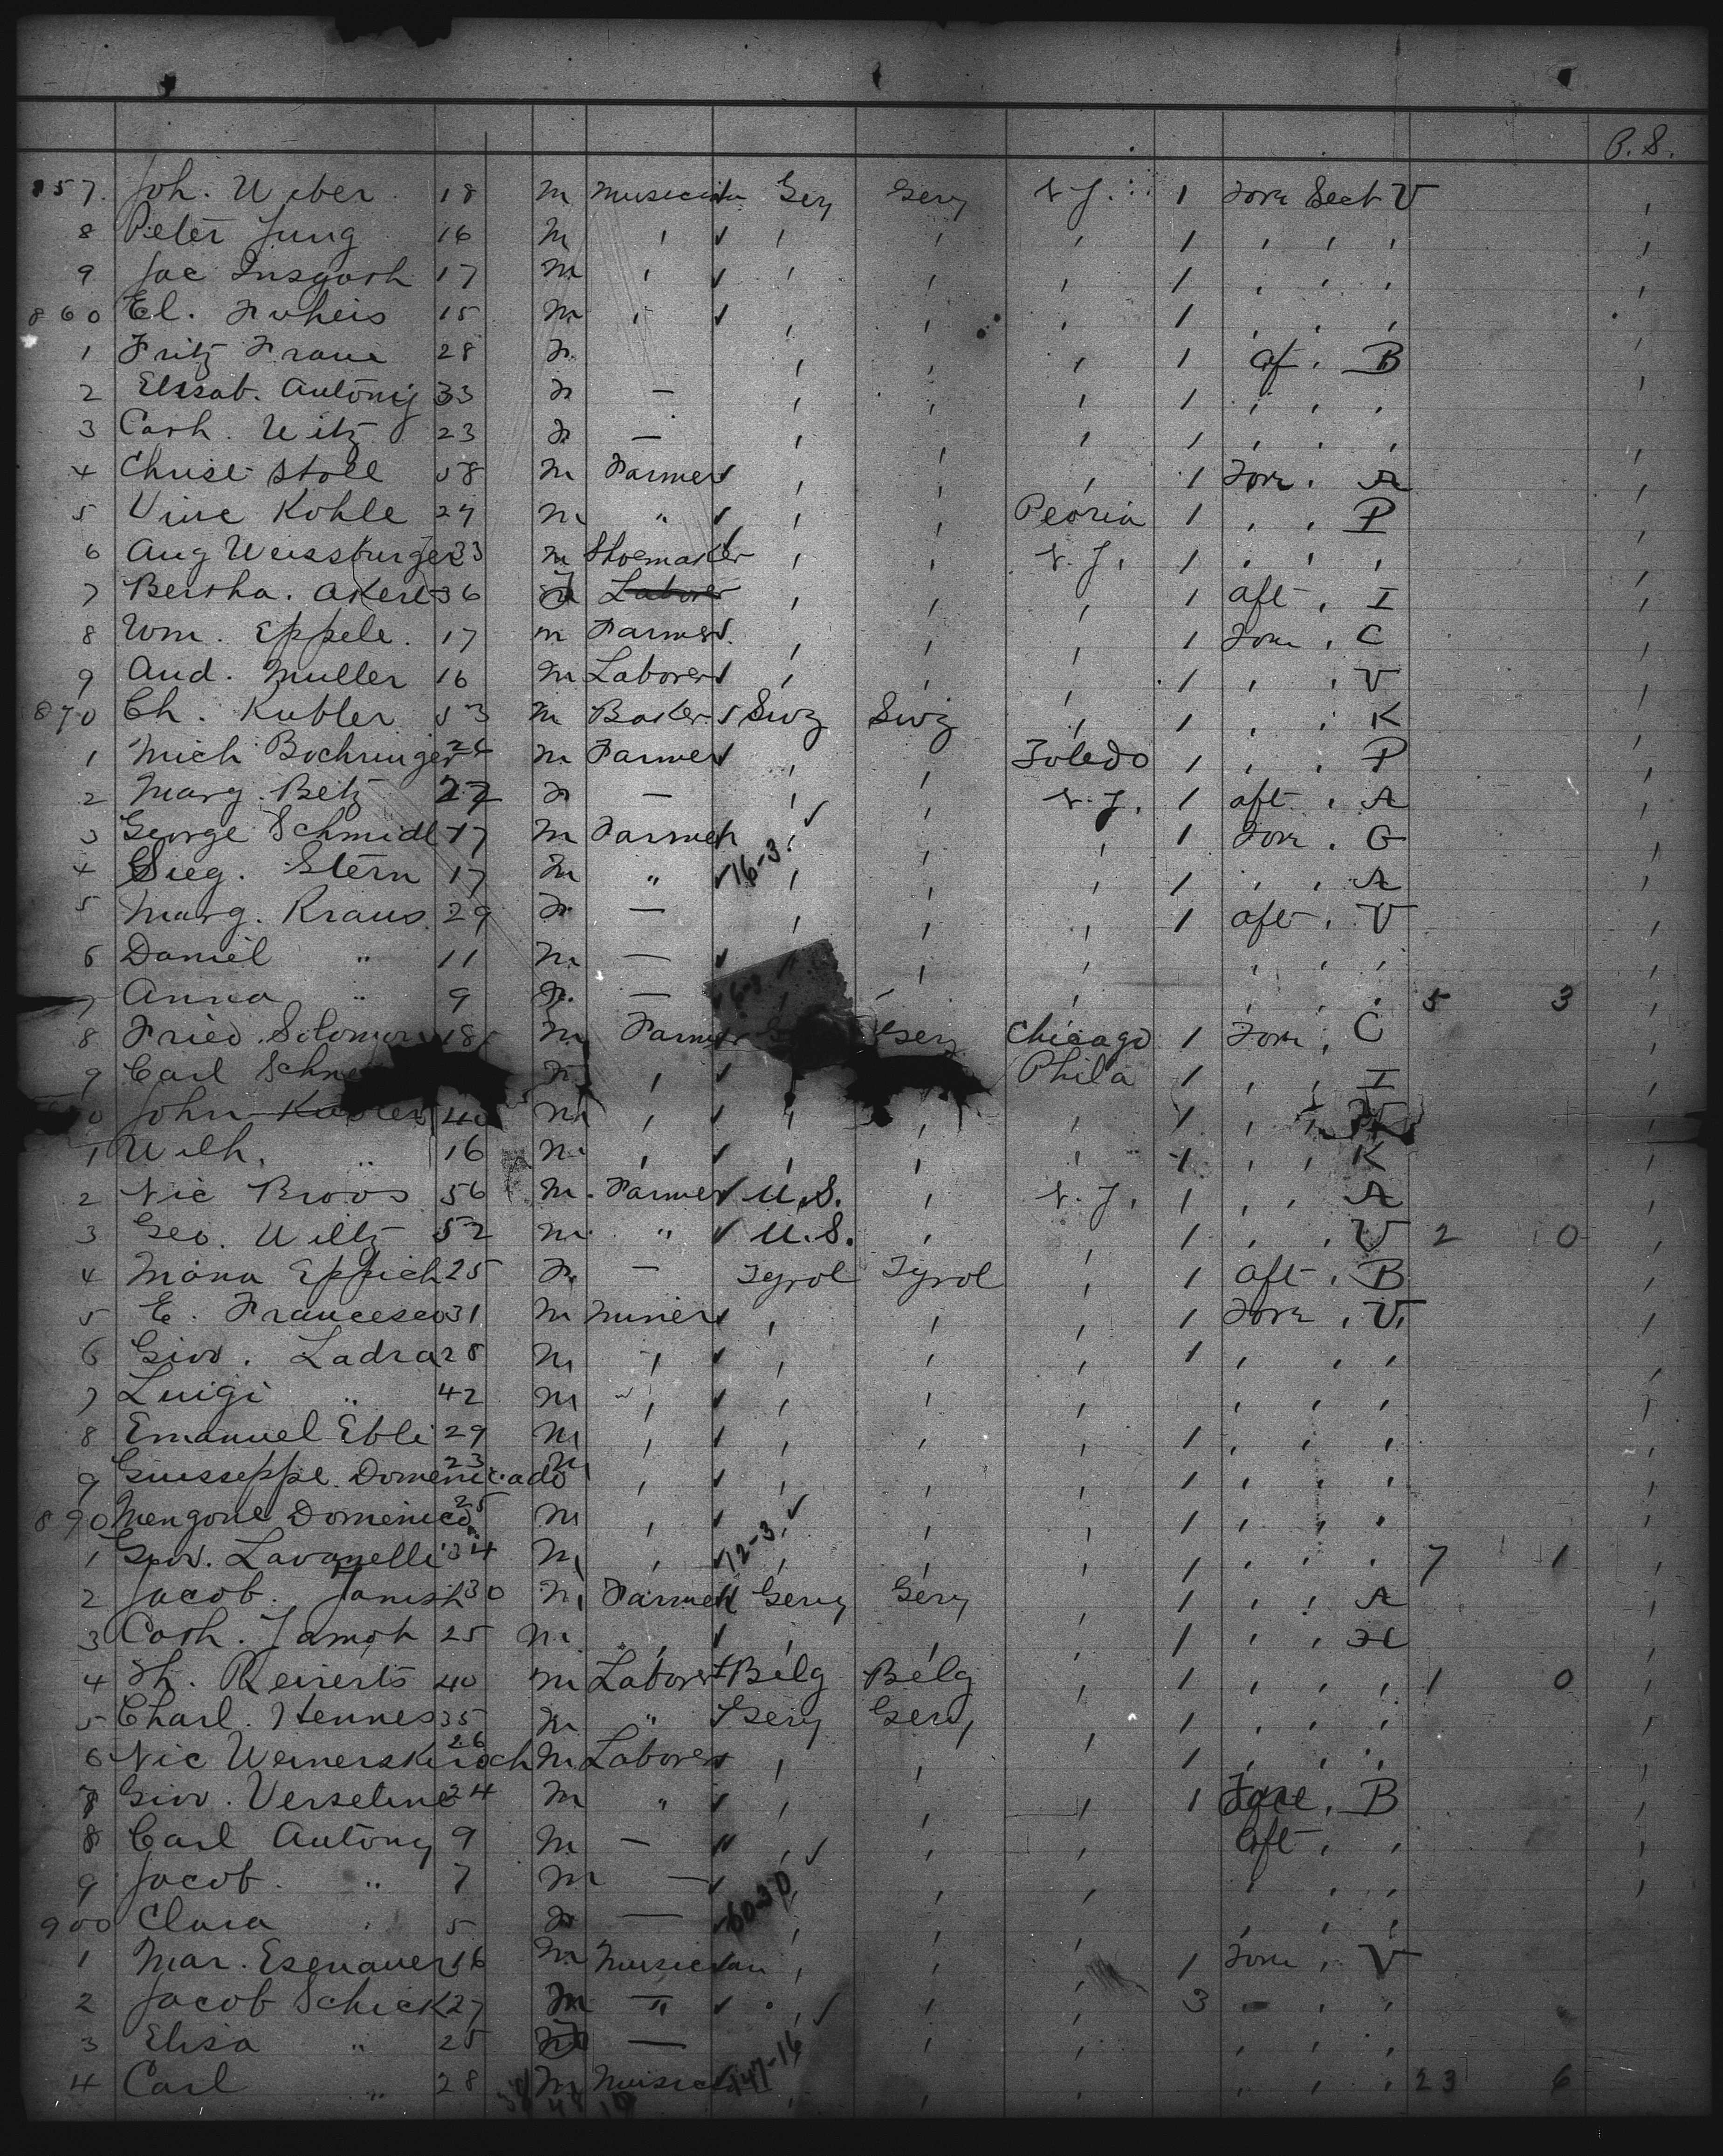 B. S.
857. Joh. Weber 18 m Musician Gery Gery N.Y. 1 Forw Sect V
8 Peter Jung 16 m ' ✓ ' ' ' 1 ' ' '
9 Jac 17 m ' ✓ ' ' ' 1 ' ' '
860 El. 15 m ' ✓ ' ' ' 1 ' ' '
1 Fritz 28 f ' ' ' 1 aft ' B
2 Elisab. Antony 33 f — ' ' ' 1 ' ' '
3 Cath. Witz 23 f — ' ' ' 1 ' ' '
4 Christ Stoll 58 m Farmer ✓ ' ' ' 1 Forw ' A
5 Kohle 24 m " ✓ ' ' Peoria 1 ' ' P
6 Aug Weissburger 33 m Shoemaker ' ' N.Y. 1 ' ' '
7 Bertha. 36 f Laborer ' ' ' 1 aft ' I
8 Wm. Eppele. 17 m Farmer ' ' ' 1 Forw ' C
9 And. Muller 16 m Laborer ✓ ' ' ' 1 ' ' V
870 Ch. Kubler 53 m Baker ✓ Swz Swz ' 1 ' ' K
1 Mich Bochringer 24 m Farmer ✓ ' ' Toledo 1 ' ' P
2 Marg. Betz 22 f — ' ' N.Y. 1 aft ' A
3 George Schmidt 17 m Farmer ' ' ' 1 Forw ' G
4 Sieg. Stern 17 m " ✓ 16-3 ' ' ' 1 ' ' A
5 Marg. Kraus 29 f — ' ' ' 1 aft ' V
6 Daniel " 11 m — ✓ ' ' ' ' '
7 Anna " 9 f — ' ' ' ' ' 5 3
8 Fried. Solomon 18 m Farmer Gery Chicago 1 Forw ' C
9 Carl m ' ✓ Phila 1 ' ' I
0 John Kubler 40 m ' ✓ ' ' ' 1 ' '
1 Wilh. " 16 m ' ✓ ' ' ' 1 ' ' K
2 Nic Broos 56 m Farmer ✓ U.S. ' N.Y. 1 ' ' A
3 Geo. Wiltz 52 m " ✓ U.S. ' ' 1 ' ' V 2 0
4 Eppich 25 f — Tyrol Tyrol ' 1 aft ' B
5 E. Francesco 31 m Miner ✓ ' ' ' 1 Forw ' V
6 Giov. Ladra 28 m ' ✓ ' ' ' 1 ' ' '
7 Luigi " 42 m ' ✓ ' ' ' ' ' '
8 Emanuel Ebli 29 m ' ✓ ' ' ' 1 ' ' '
9 Giusseppe Domenicado 23 m ' ✓ ' ' ' 1 ' ' '
890 Mengone Domenico 25 m ' ✓ ' ' ' 1 ' ' '
1 Giov. Lavanelli 34 m ' ✓ 12-3 ' ' ' 1 ' ' ' 7 1
2 Jacob. Janish 30 m Farmer Gery Gery ' 1 ' ' A
3 Cath. 25 m " ✓ ' ' ' 1 ' ' H
4 Th. Reinerts 40 m Laborer Belg Belg ' 1 ' ' ' 1 0
5 Charl. Hennes 35 m " Gery Gery ' 1 ' ' '
6 Nic Weinerskirch 26 m Laborer ' ' ' 1 ' ' '
7 Giov. Verseline 24 m " ✓ ' ' ' 1 Fore ' B
8 Carl Antony 9 m — ' ' ' Aft ' '
9 Jacob. " 7 m — ✓ ' ' ' ' ' '
900 Clara ' 5 f — ' ' ' ' ' '
1 Mar. Esenauer 16 m Musician ' ' ' 1 Forw ' V
2 Jacob Schick 27 m " ✓ ' ' ' 3 ' ' '
3 Elisa " 25 f — ' ' ' ' ' '
4 Carl " 28 m Musician 147-16 ' ' ' ' ' ' 23 6